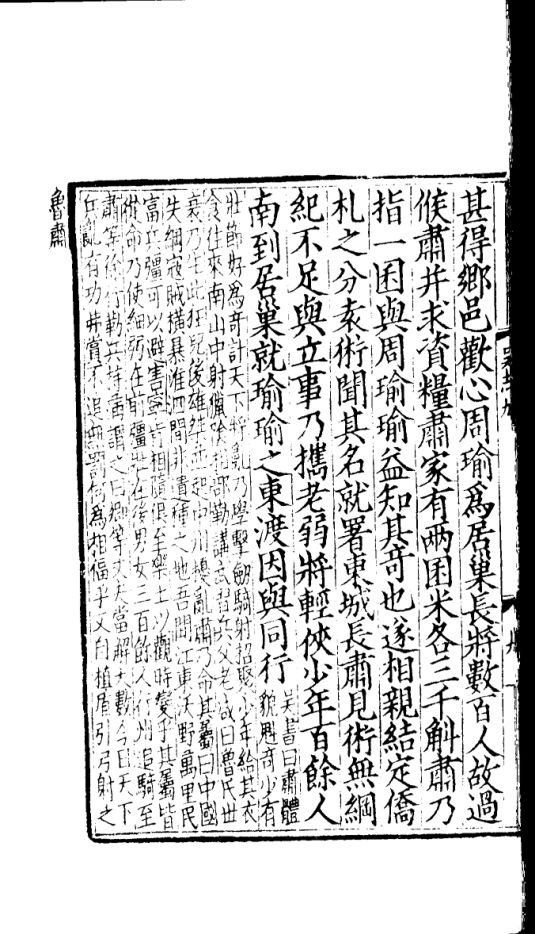 甚得鄉邑歡心周瑜爲居巢長將數百人故過
候肅并求資糧肅家有兩囷米各三千斛肅乃
指一囷與周瑜瑜益知其奇也遂相親結定僑
札之分袁術聞其名就署東城長肅見術無綱
紀不足與立事乃攜老弱將輕俠少年百餘人
南到居巢就瑜瑜之東渡因與同行
吳書曰肅體
貌魁奇少有
壯節好爲奇計天下將亂乃學擊劔騎射招聚少年給其衣
食往來南山中射獵陰相部勒講武習兵父老咸曰魯氏世
衰乃生此狂兒後雄桀並起中州擾亂肅乃命其屬曰中國
失綱寇賊橫暴淮泗間非遺種之地吾聞江東沃野萬里民
富兵彊可以避害寧肯相隨俱至樂土以觀時變乎其屬皆
從命乃使細弱在前彊壯在後男女三百餘人行州追騎至
肅等徐行勒兵持滿謂之曰卿等丈夫當解大數今日天下
兵亂有功弗賞不追無罰何爲相偪乎又自植盾引弓射之
魯肅